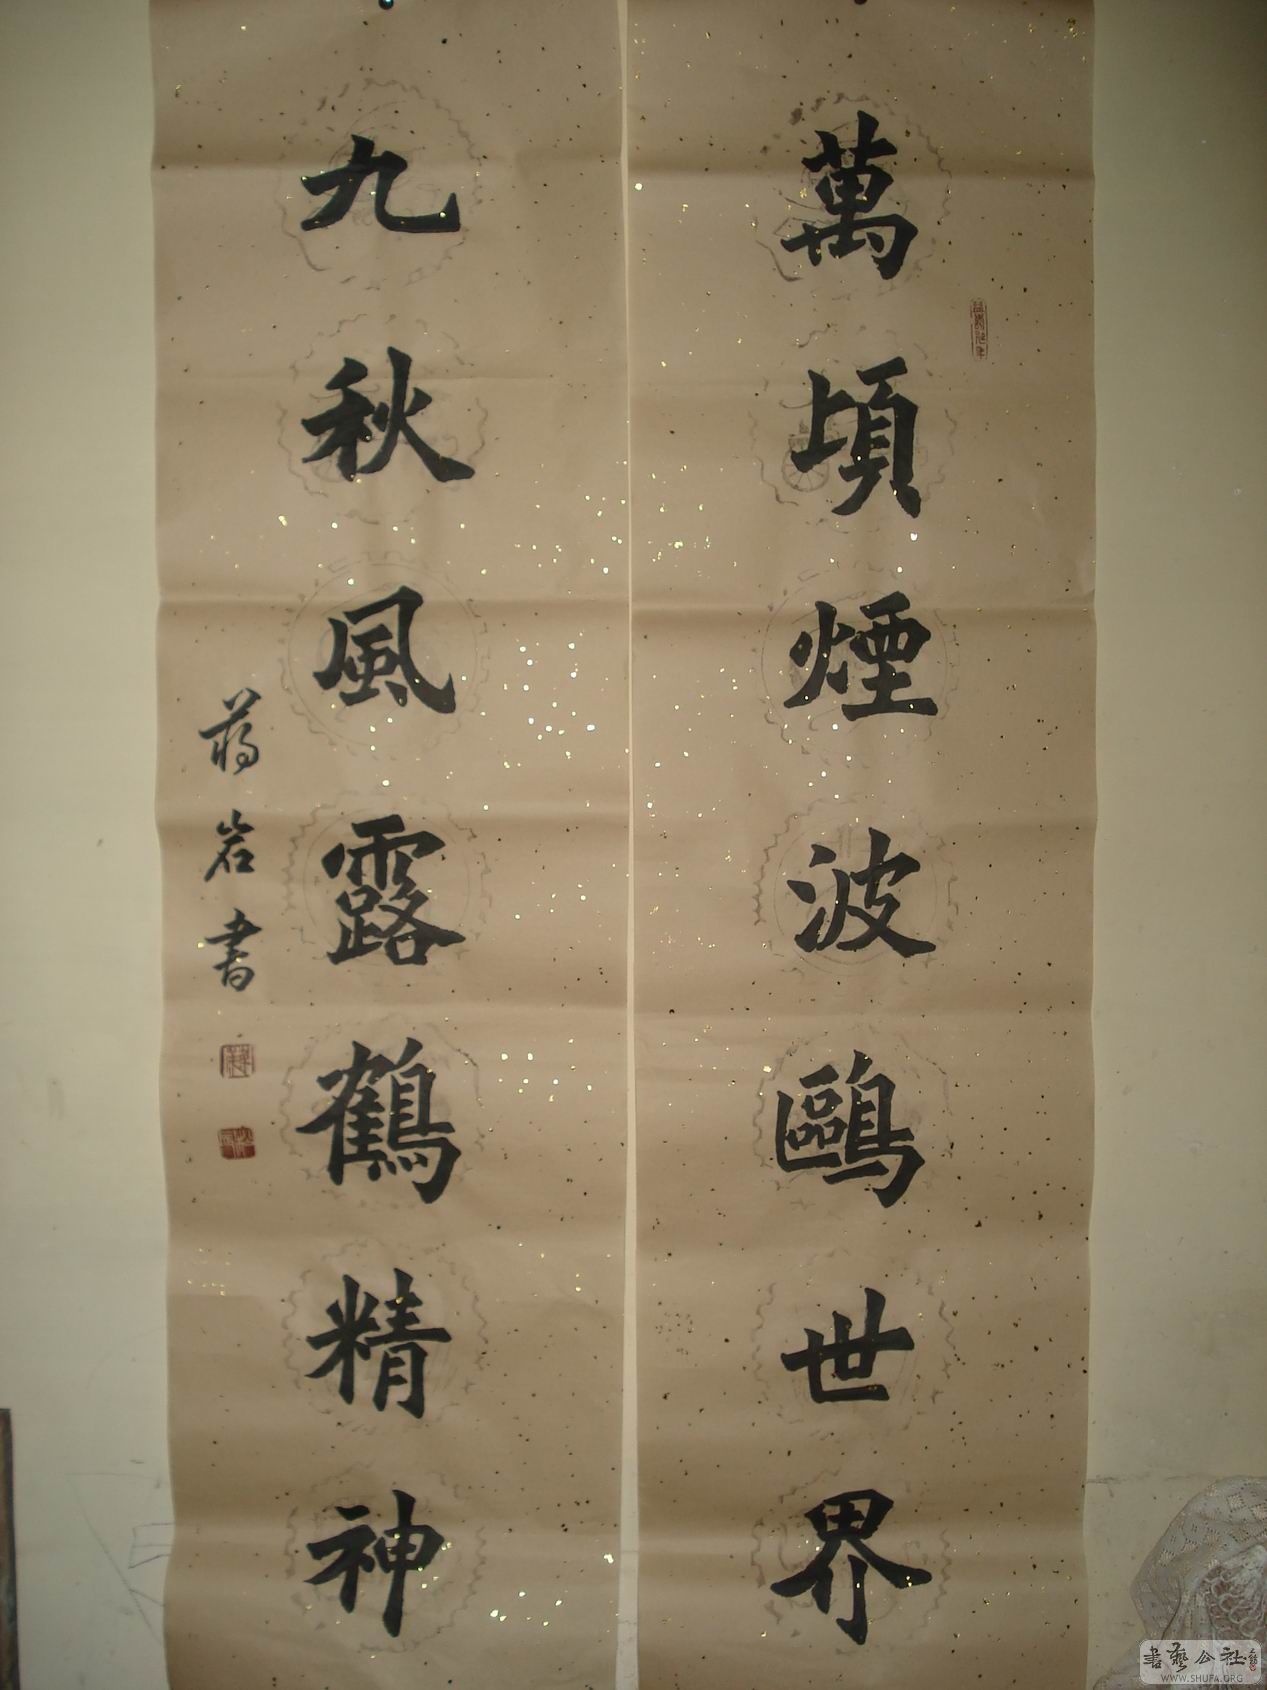 萬頃煙波鷗世界
九秋風露鶴精神
蔣岩書
書藝公社
WWW.SHUFA.ORG